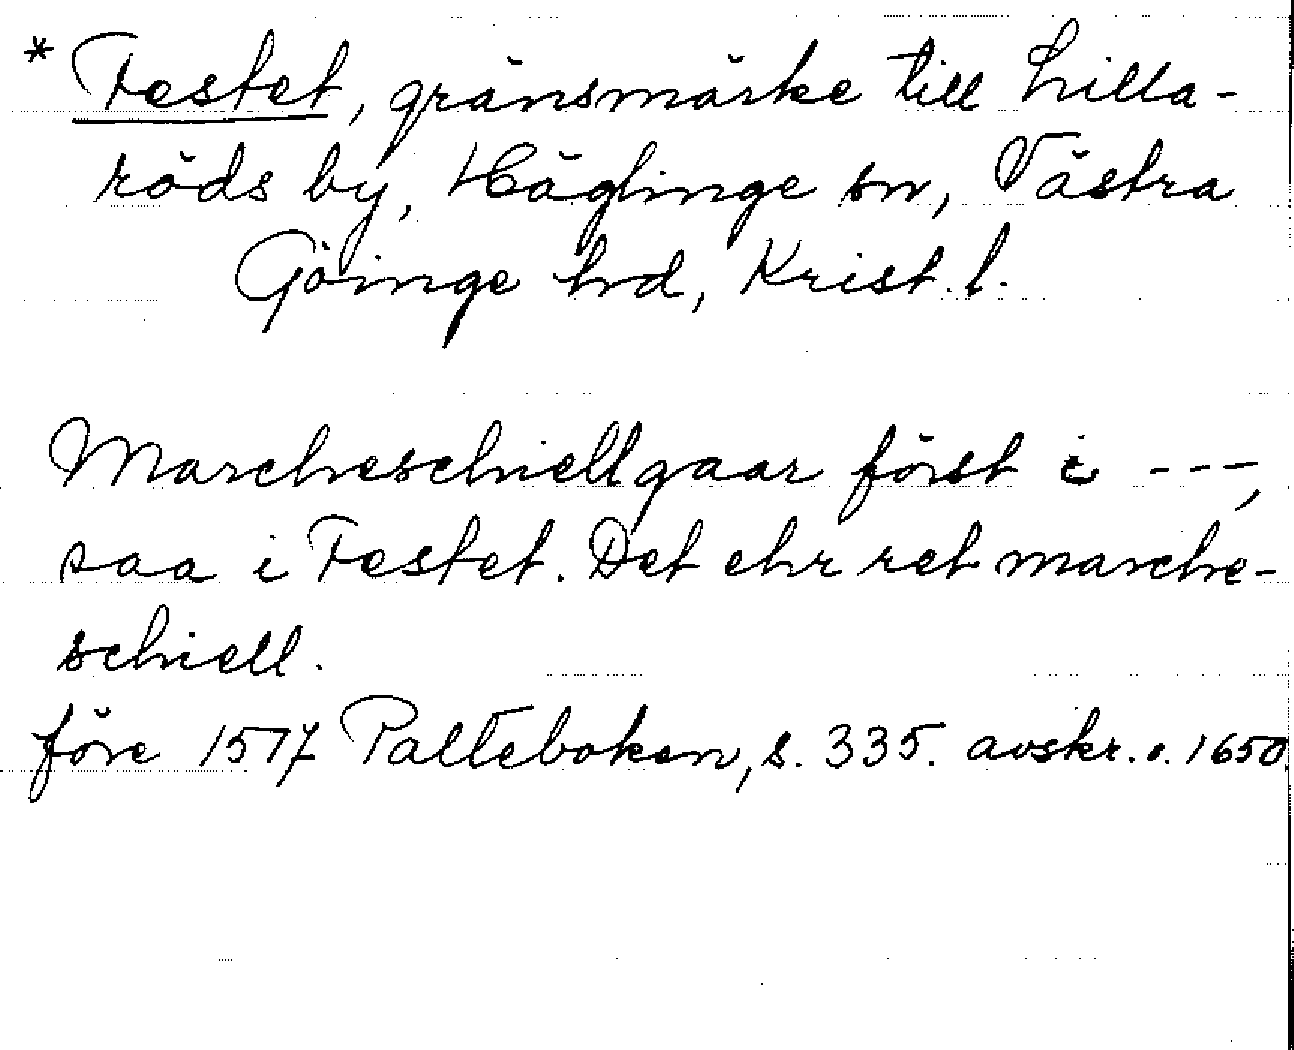 * Festet, gränsmärke till Lilla-
röds by, Häglinge sn, Västra
Göinge hd, Krist. l.
Marcheschiellgaar först i ---,
saa i Festet. Det ehr ret marche-
schiell.
före 1517 Palteboken, s. 335. avskr. o. 1650